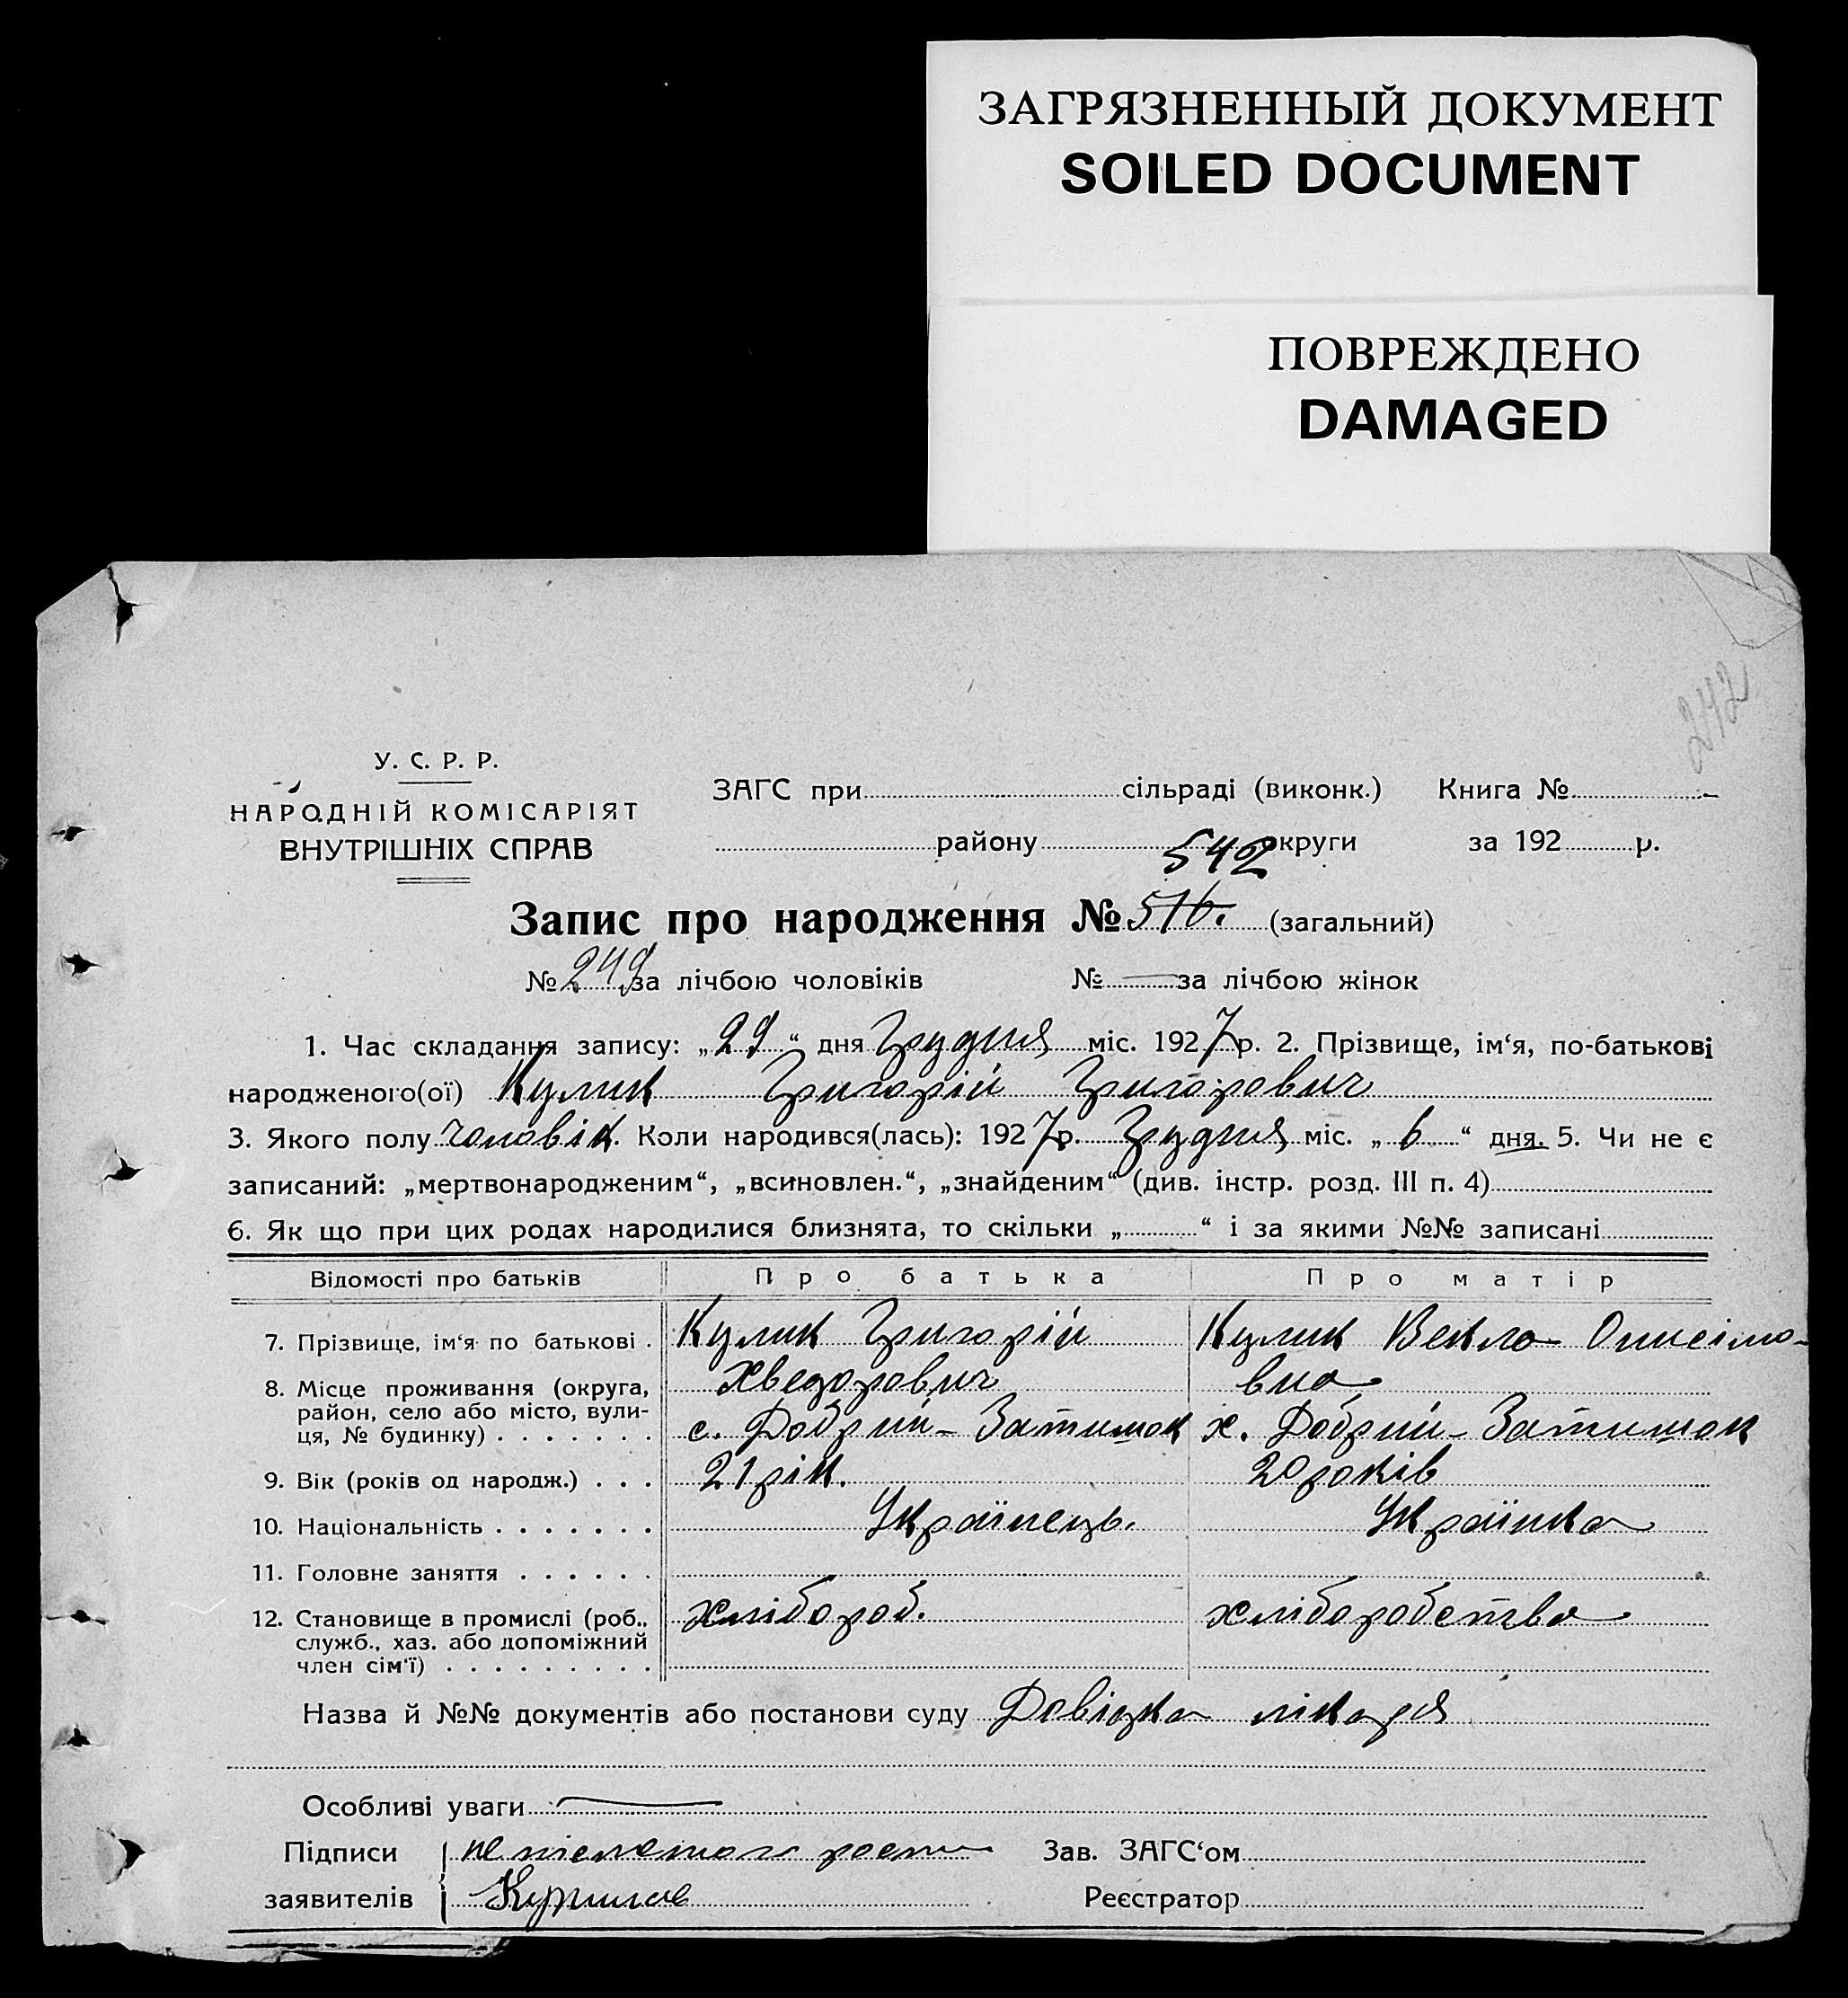 ЗАГРЯЗНЕННЫЙ ДОКУМЕНТ
SOILED DOCUMENT
ПОВРЕЖДЕНО
DAMAGED
242
У. С. Р. Р.
НАРОДНІЙ КОМІСАРІЯТ
ВНУТРІШНІХ СПРАВ
ЗАГС при сільраді (виконк.) Книга №
району округи за 192 р.
542
Запис про народження № 516. (загальний)
№ 249 за лічбою чоловіків № — за лічбою жінок
1. Час складання запису: „29“ дня Грудня міс. 1927 р. 2. Прізвище, ім‘я, по-батькові
народженого(ої) Кулик Григорій Григорович
3. Якого полу чоловік. Коли народився(лась): 1927 р. Грудня міс. „6“ дня. 5. Чи не є
записаний: „мертвонародженим“, „всиновлен.“, „знайденим“ (див. інстр. розд. III п. 4)
6. Як що при цих родах народилися близнята, то скільки „ “ і за якими №№ записані
Відомості про батьків Про батька Про матір
7. Прізвище, ім‘я по батькові . Кулик Григорій Кулик Векла Онисімо-
Хведорович вна
8. Місце проживання (округа,
район, село або місто, вули-
ця, № будинку) . . . . . . . с. Добрий-Затишок х. Добрий-Затишок
9. Вік (років од народж.) . . . 21 рік. 20 років
10. Національність . . . . . . . Українець. Українка
11. Головне заняття . . . . . .
12. Становище в промислі (роб., хлібороб. хліборобства
служб., хаз. або допоміжний
член сім‘ї) . . . . . . . . .
Назва й №№ документів або постанови суду Довідка лікаря
Особливі уваги —
Підписи Зав. ЗАГС‘ом
заявителів Реєстратор